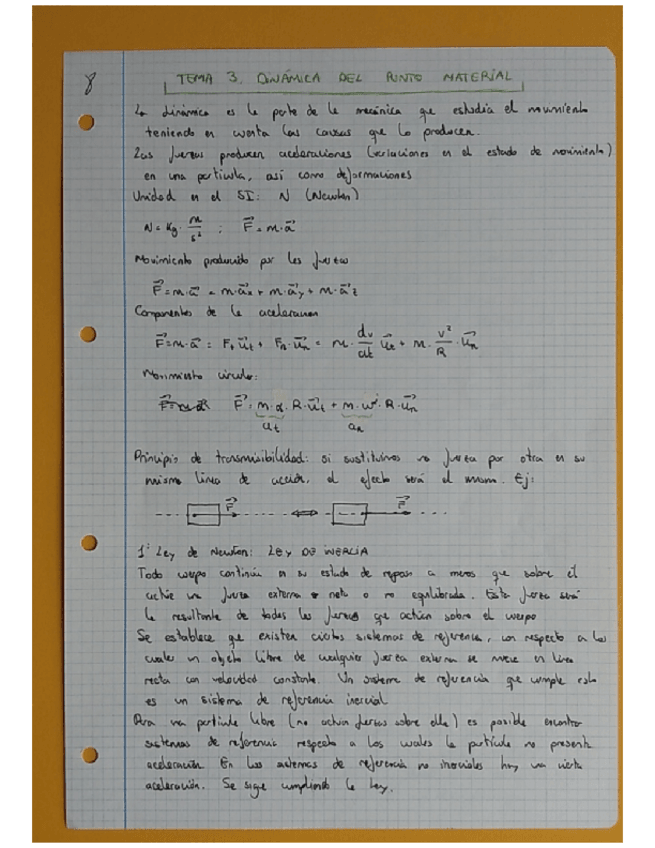 8
TEMA 3. DINÁMICA DEL PUNTO MATERIAL
La dinámica es la parte de la mecánica que estudia el movimiento
teniendo en cuenta las causas que lo producen.
Las fuerzas producen aceleraciones (variaciones en el estado de movimiento)
en una partícula, así como deformaciones
Unidad en el SI: N (Newton)
N = Kg · m/s² ; F⃗ = m·a⃗
Movimiento producido por las fuerzas
F⃗ = m·a⃗ = m·a⃗x + m·a⃗y + m·a⃗z
Componentes de la aceleración
F⃗ = m·a⃗ = Ft u⃗t + Fn·u⃗n = m · dv/dt u⃗t + m · v²/R · u⃗n
Movimiento circular:
F⃗ = m·α·R·u⃗t + m·ω²·R·u⃗n
at an
Principio de transmisibilidad: si sustituimos una fuerza por otra en su
misma línea de acción, el efecto será el mismo. Ej:
F⃗ F⃗
1ª Ley de Newton: LEY DE INERCIA
Todo cuerpo continúa en su estado de reposo a menos que sobre él
actúe una fuerza externa neta o no equilibrada. Esta fuerza será
la resultante de todas las fuerzas que actúan sobre el cuerpo
Se establece que existen ciertos sistemas de referencia, con respecto a los
cuales un objeto libre de cualquier fuerza externa se mueve en línea
recta con velocidad constante. Un sistema de referencia que cumple esto
es un sistema de referencia inercial
Para una partícula libre (no actúan fuerzas sobre ella) es posible encontrar
sistemas de referencia respecto a los cuales la partícula no presenta
aceleración. En los sistemas de referencia no inerciales hay una cierta
aceleración. Se sigue cumpliendo la ley.